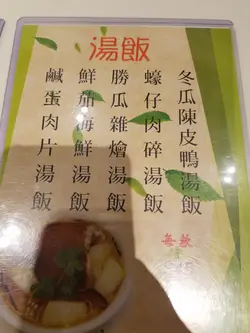 湯飯
冬瓜陳皮鴨湯飯
蠔仔肉碎湯飯
勝瓜雜燴湯飯
鮮茄海鮮湯飯
鹹蛋肉片湯飯
每款